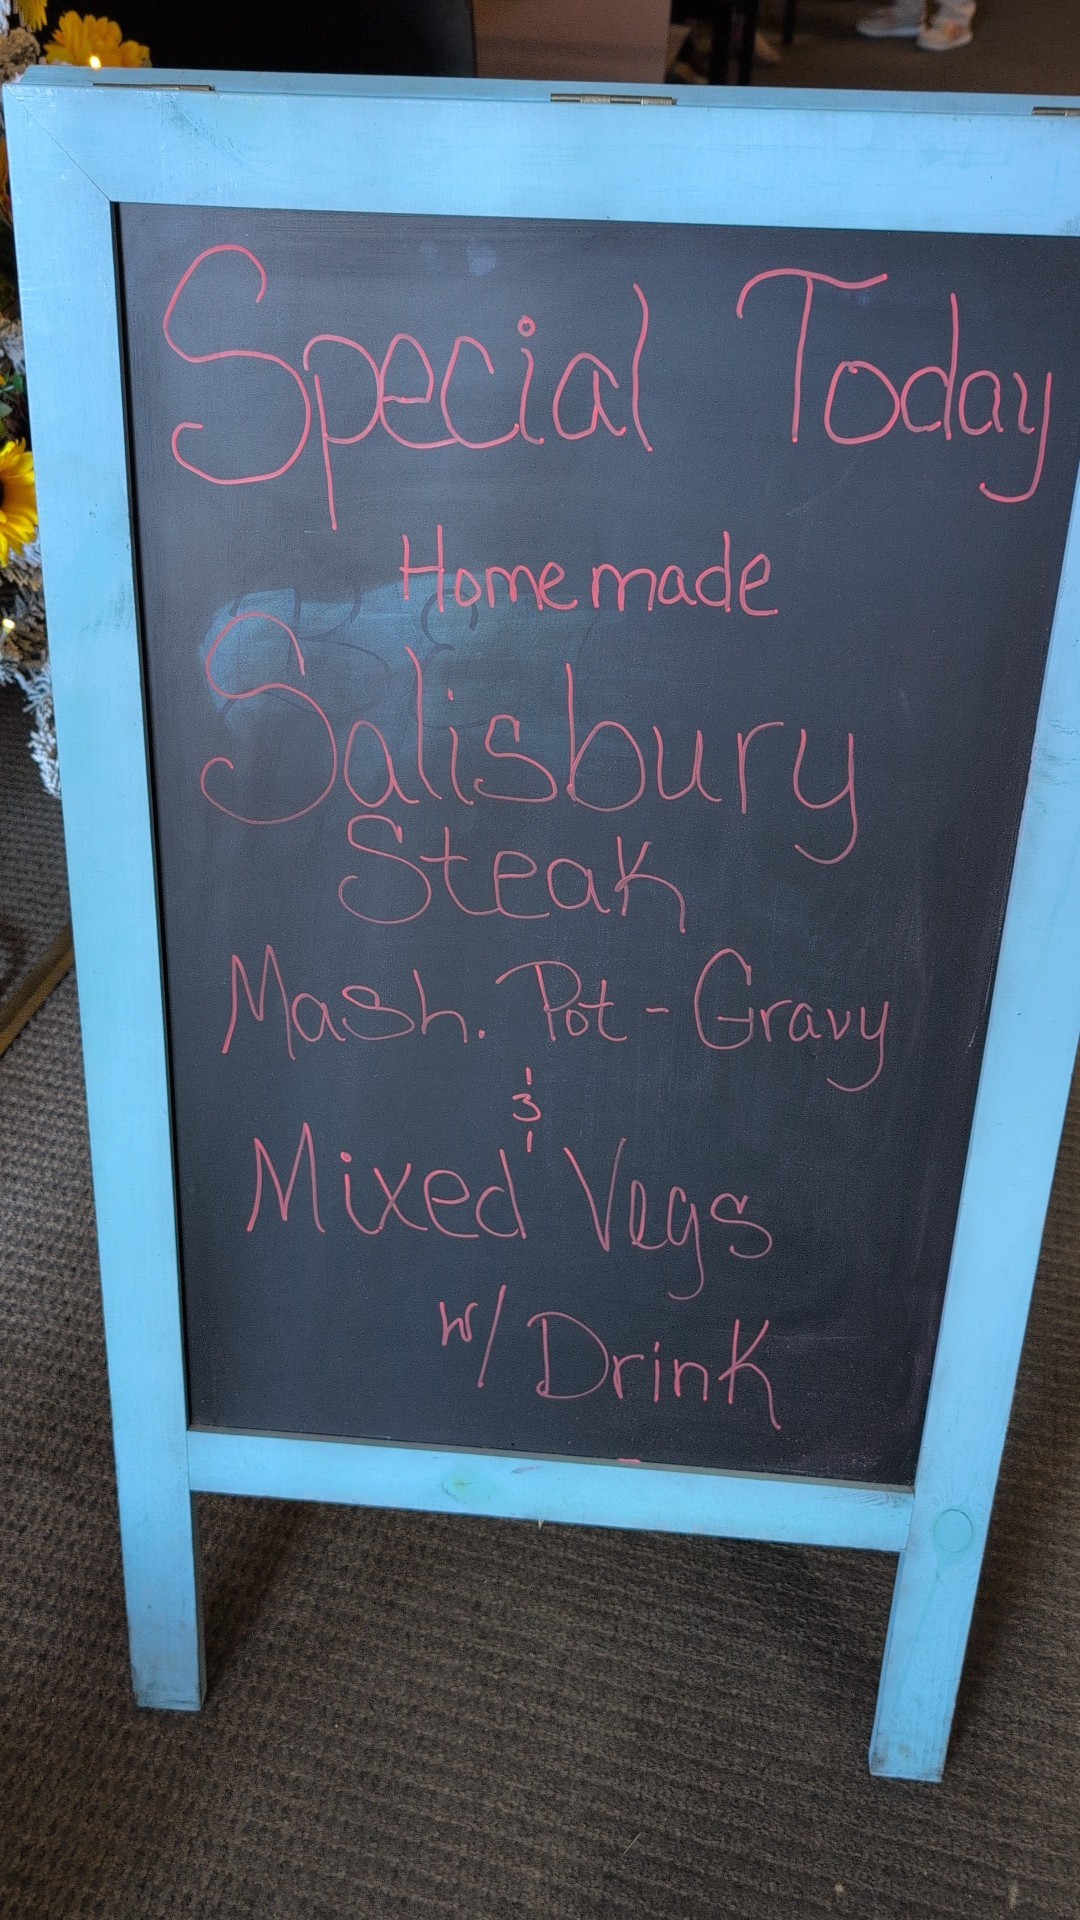 Special Today
Homemade
Salisbury
Steak
Mash. Pot - Gravy
&
Mixed Vegs
w/ Drink